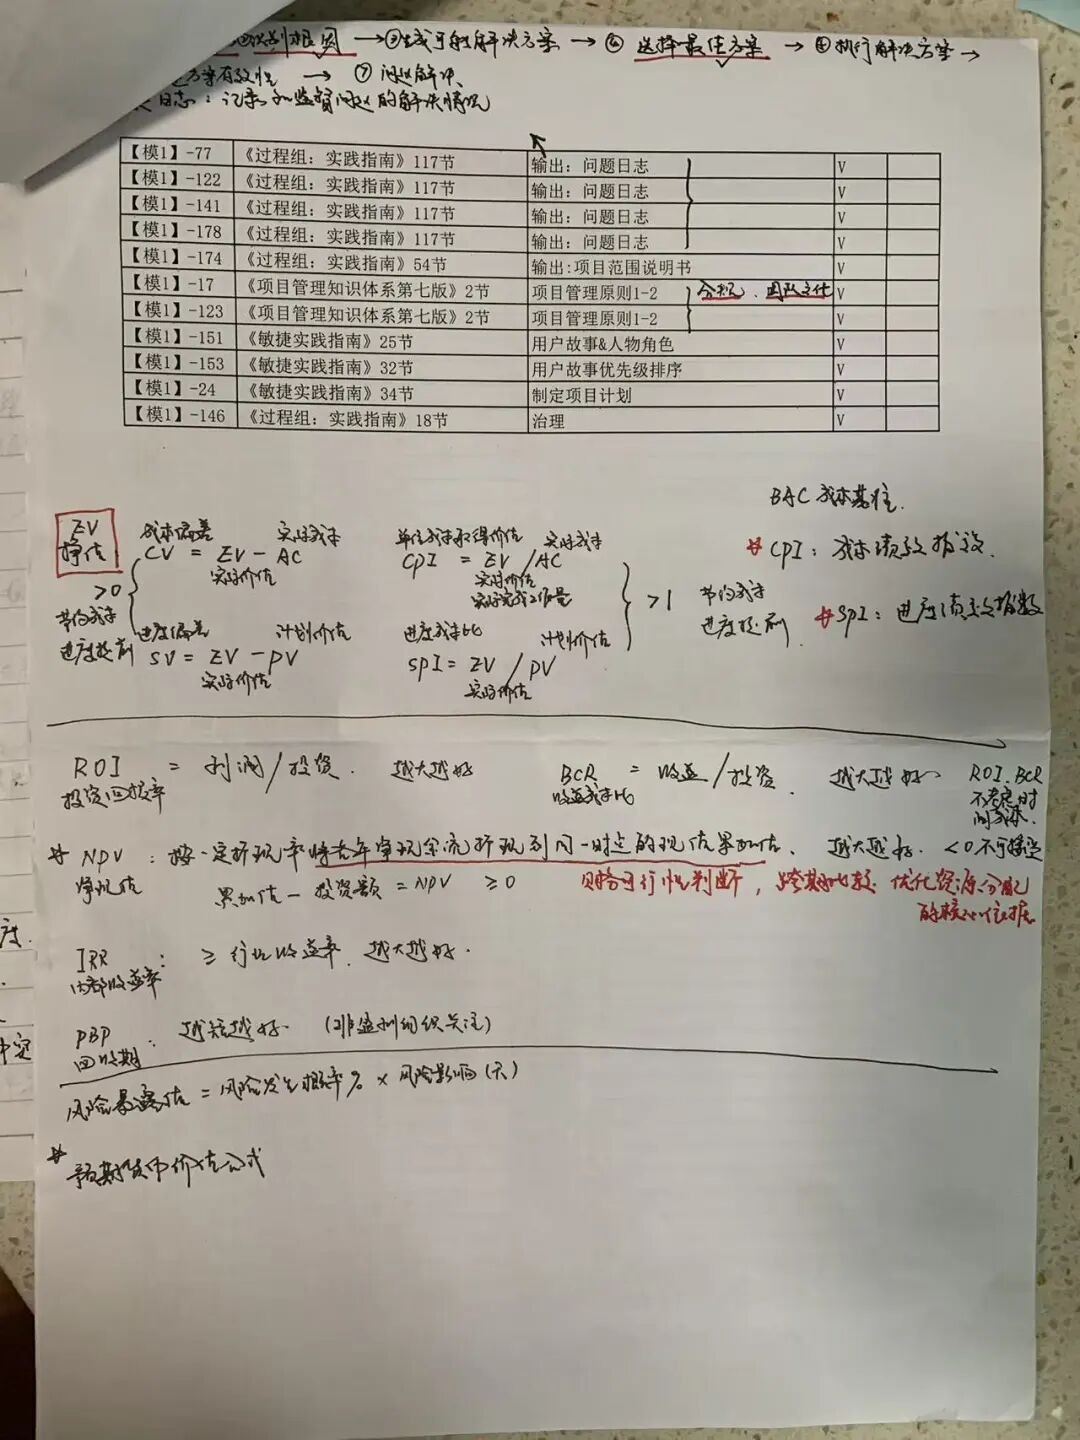 识别根因 → ③生成可能解决方案 → ④ 选择最佳方案 → ⑤执行解决方案 →
方案有效性 → ⑦ 问题解决
日志：记录和监督问题的解决情况
【模1】-77 《过程组：实践指南》117节 输出：问题日志 V
【模1】-122 《过程组：实践指南》117节 输出：问题日志 V
【模1】-141 《过程组：实践指南》117节 输出：问题日志 V
【模1】-178 《过程组：实践指南》117节 输出：问题日志 V
【模1】-174 《过程组：实践指南》54节 输出:项目范围说明书 V
【模1】-17 《项目管理知识体系第七版》2节 项目管理原则1-2 分歧、团队文化 V
【模1】-123 《项目管理知识体系第七版》2节 项目管理原则1-2 V
【模1】-151 《敏捷实践指南》25节 用户故事&人物角色 V
【模1】-153 《敏捷实践指南》32节 用户故事优先级排序 V
【模1】-24 《敏捷实践指南》34节 制定项目计划 V
【模1】-146 《过程组：实践指南》18节 治理 V
BAC 成本基准
EV
挣值
成本偏差 实际成本 单位成本取得价值 实际成本
CV = EV - AC CPI = EV / AC
实际价值 实际价值
实际完成工作量
CPI：成本绩效指数.
>0 >1 节约成本
节约成本 进度提前
进度提前
SPI：进度绩效指数
进度偏差 计划价值 进度成本比 计划价值
SV = EV - PV SPI = EV / PV
实际价值 实际价值
ROI = 利润/投资. 越大越好 BCR = 收益/投资. 越大越好 ROI.BCR
投资回报率 收益成本比 不考虑时
间成本.
NPV：按一定折现率将若干年净现金流折现到同一时点的现值累加值、越大越好. <0不可接受
净现值 累加值-投资额=NPV ≥0 财务可行性判断，跨期比较、优化资源分配
的核心依据
IRR：≥行业收益率、越大越好.
内部收益率
PBP：越短越好. (非盈利组织关注)
回收期
风险暴露值 = 风险发生概率% × 风险影响(天)
预期货币价值公式